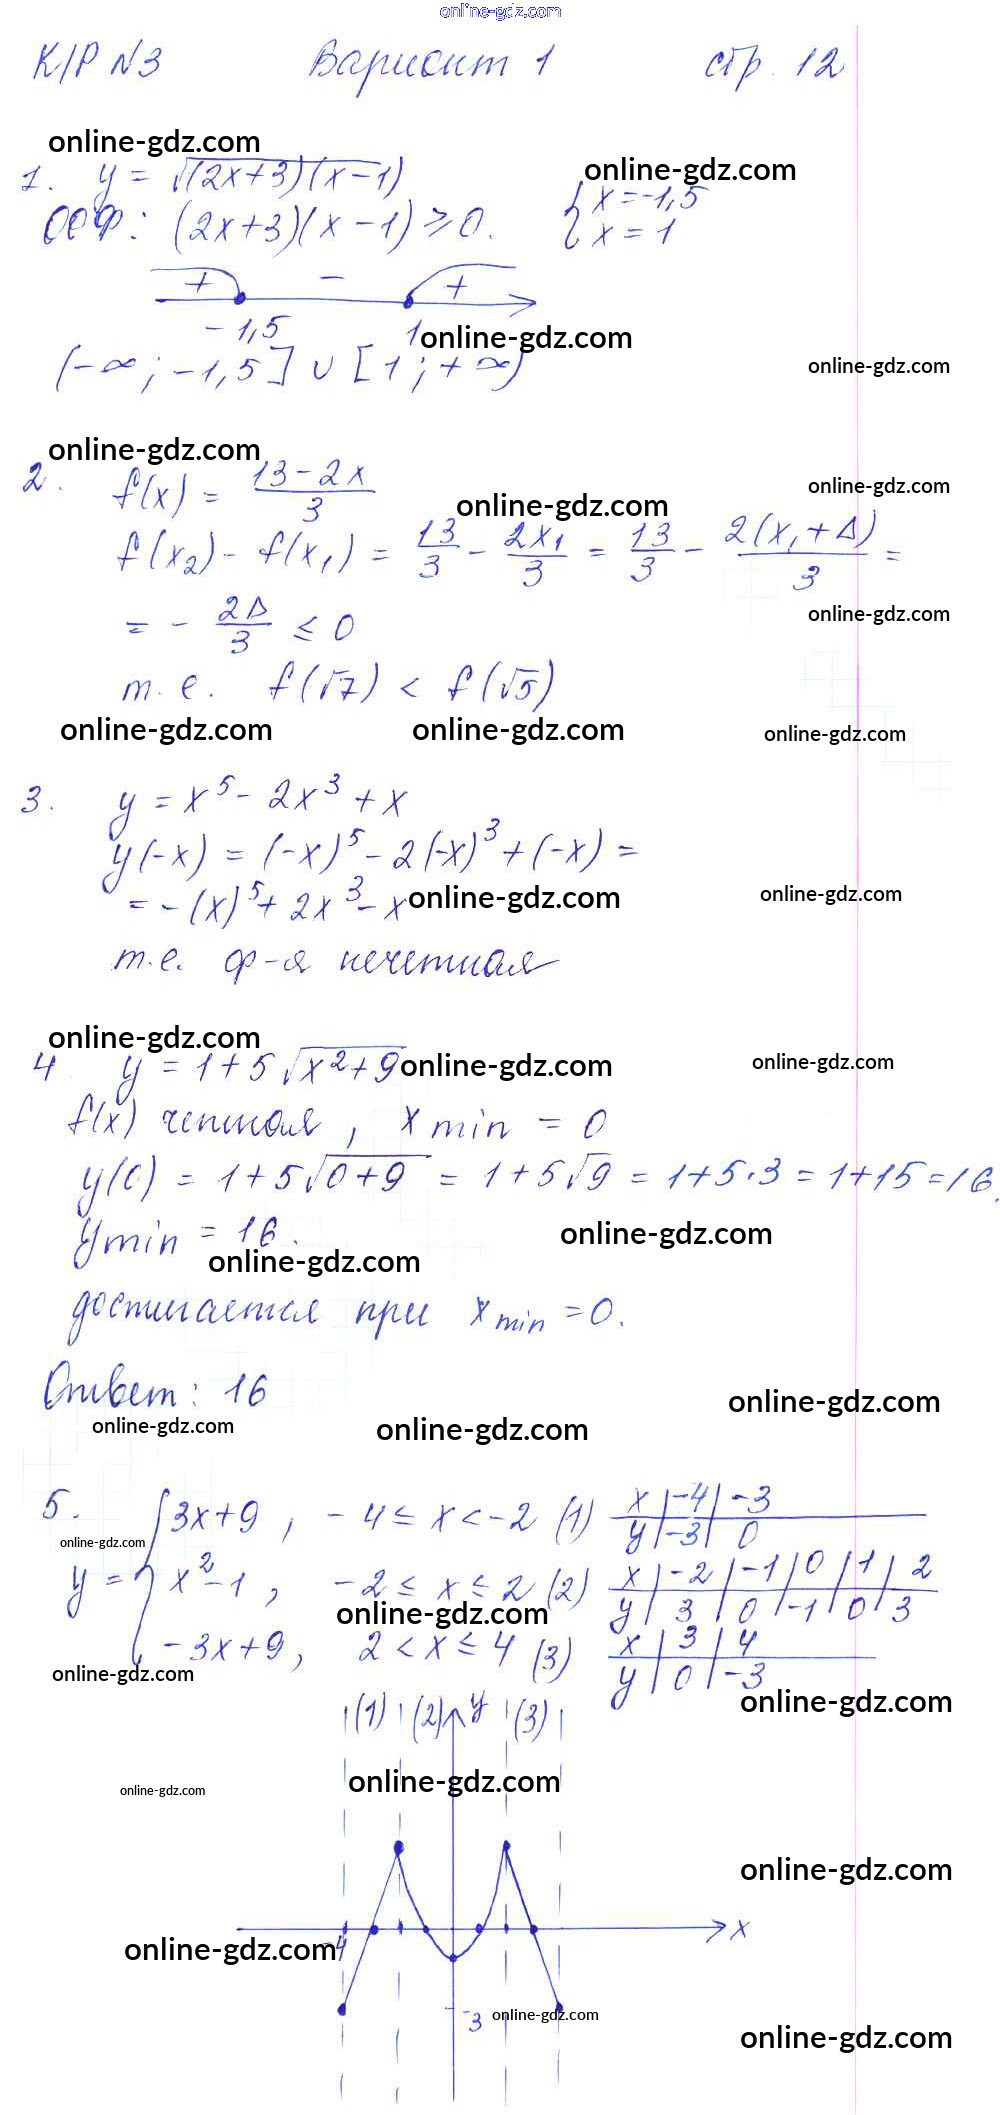 online-gdz.com
К/Р №3 Вариант 1 стр. 12
online-gdz.com
online-gdz.com
1. y = √(2x+3)(x-1)
ООФ: (2x+3)(x-1) ≥ 0. { x = -1,5
x = 1
+ - +
-1,5 1
online-gdz.com
(-∞; -1,5] ∪ [1; +∞)
online-gdz.com
online-gdz.com
2. f(x) = (13-2x)/3
online-gdz.com
online-gdz.com
f(x₂) - f(x₁) = 13/3 - 2x₁/3 = 13/3 - 2(x₁+Δ)/3 =
= - 2Δ/3 ≤ 0
online-gdz.com
т.е. f(√7) < f(√5)
online-gdz.com online-gdz.com online-gdz.com
3. y = x⁵ - 2x³ + x
y(-x) = (-x)⁵ - 2(-x)³ + (-x) =
= -(x)⁵ + 2x³ - x
online-gdz.com online-gdz.com
т.е. ф-я нечетная
online-gdz.com
4 y = 1 + 5√x²+9
online-gdz.com online-gdz.com
f(x) четная, x min = 0
y(0) = 1 + 5√0+9 = 1 + 5√9 = 1+5·3 = 1+15 = 16.
y min = 16.
online-gdz.com online-gdz.com
достигается при x min = 0.
Ответ: 16
online-gdz.com online-gdz.com online-gdz.com
5. { 3x+9, -4 ≤ x < -2 (1) x | -4 | -3
y | -3 | 0
online-gdz.com
y = x²-1, -2 ≤ x ≤ 2 (2) x | -2 | -1 | 0 | 1 | 2
y | 3 | 0 | -1 | 0 | 3
online-gdz.com
-3x+9, 2 < x ≤ 4 (3) x | 3 | 4
y | 0 | -3
online-gdz.com
online-gdz.com
(1) (2) y (3)
online-gdz.com
online-gdz.com
online-gdz.com
x
-4
online-gdz.com
-3
online-gdz.com
online-gdz.com